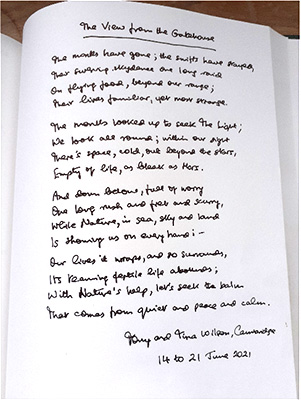 The View from the Gatehouse
The monks have gone; the swifts have stayed,
Their swerving skydance one long raid
On flying food, beyond our range;
Their lives familiar, yet most strange.
The monks looked up to seek The Light;
We look all round; within our sight
There's space, cold, out beyond the stars,
Empty of life, as bleak as Mars.
And down below, full of worry
One long rush and fret and scurry,
While Nature, in sea, sky and land
Is showing us on every hand:-
Our lives it wraps, and so surrounds,
Its teeming fertile life abounds;
With Nature's help, let's seek the balm
That comes from quiet and peace and calm.
Tony and Tina Wilson, Cambridge
14 to 21 June 2021